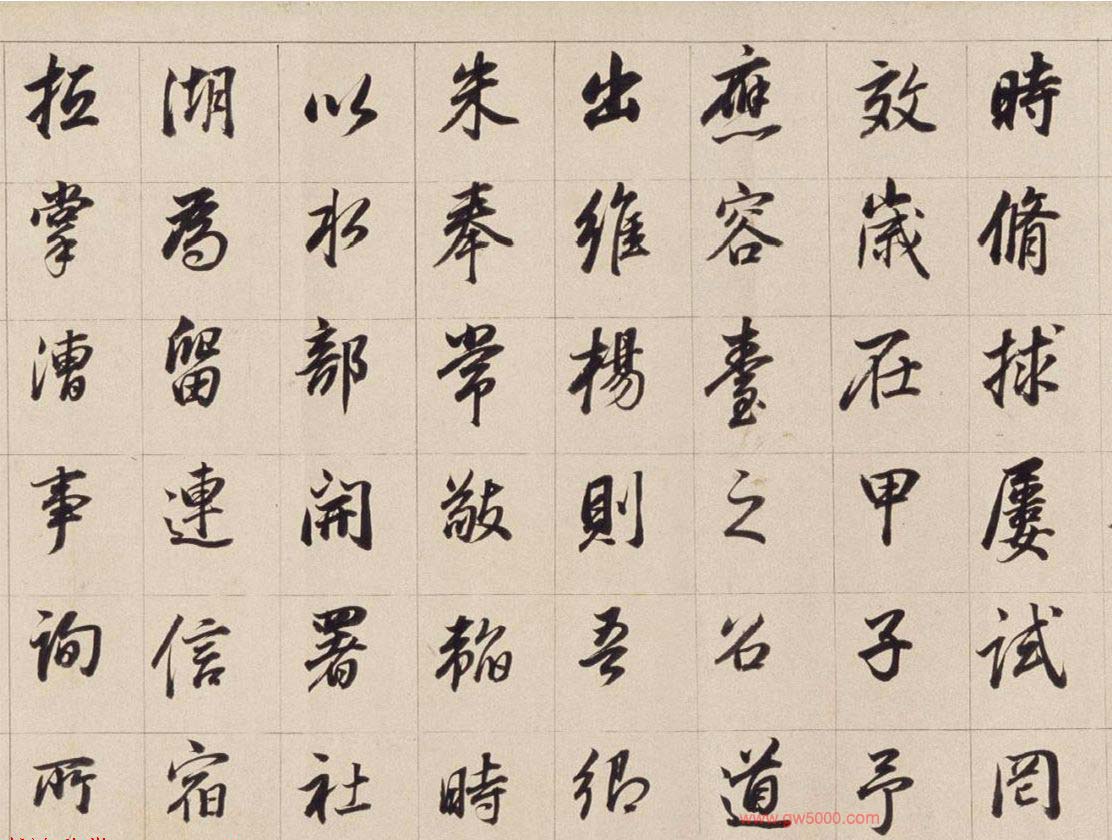 時脩捄屢試罔
效歲在甲子予
應容臺之召道
出維楊則吾鄉
朱奉常敬韜時
以水部開署社
湖為留連信宿
抵掌漕事詢所
www.gw5000.com